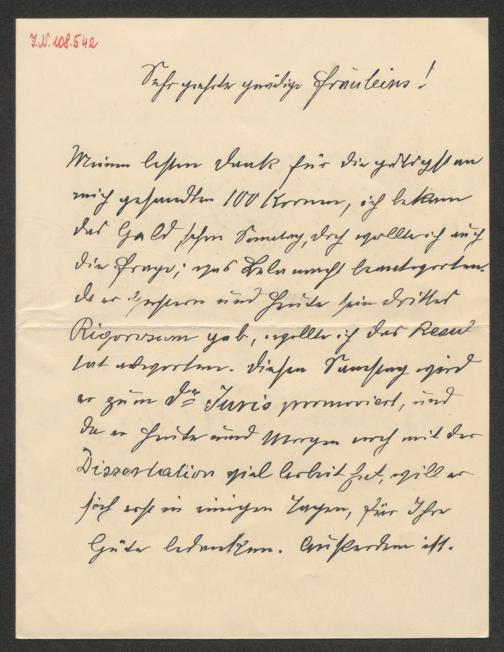 J.N. 108.542
Sehr geehrte gnädige Fräuleins!
Meinen besten Dank für die gütigst an
mich gesandten 100 Kronen, ich bekam
das Geld schon Samstag, doch wollte ich auch
die Frage; was Bela macht beantworten.
da er gestern und heute sein drittes
Rigorosum gab, wollte ich das Resul
tat abwarten. Diesen Samstag wird
er zum Dr Juris promoviert, und
da er heute und Morgen noch mit der
Dissertation viel Arbeit hat, will er
sich erst in einigen Tagen, für Ihre
Güte bedanken. Außerdem ist.